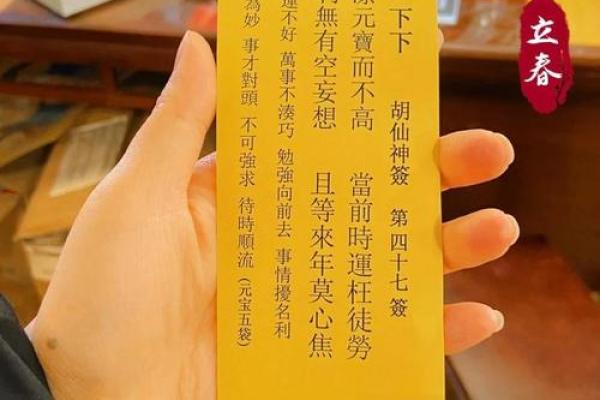 立春
下下 胡仙神簽 第四十七簽
元寶而不高 當前時運枉徒勞
無有空妄想 且等來年莫心焦
運不好 萬事不湊巧 勉強向前去 事情擾名利
為妙 事才對頭 不可強求 待時順流 (元宝五袋)